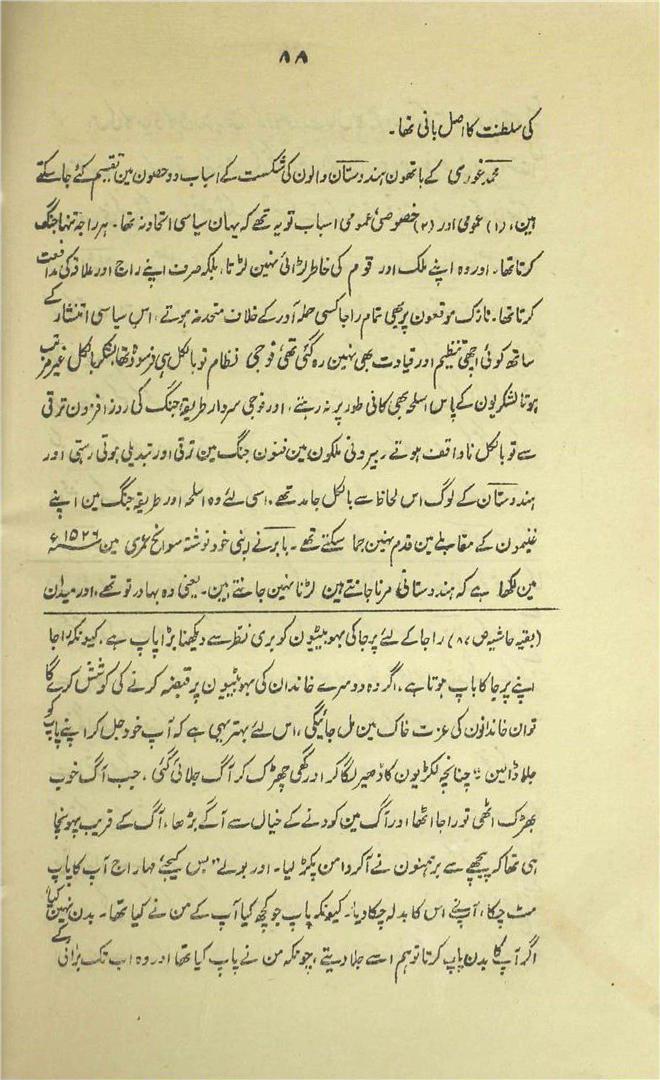 ۸۸
کی سلطنت کا اصل بانی تھا۔
محمد غوری کے ہاتھون ہندوستان والون کی شکست کے اسباب دو حصون مین تقسیم کئے جا سکتے
ہین، (۱) عمومی اور (۲) خصوصی عمومی اسباب تو یہ تھے کہ یہان سیاسی اتحاد نہ تھا۔ ہر راجہ تنہا جنگ
کرتا تھا۔ اور وہ اپنے ملک اور قوم کی خاطر لڑائی نہین لڑتا، بلکہ صرف اپنے راج اور علاقہ کی مدافعت
کرتا تھا۔ نازک موقعون پر بھی تمام راجا کسی حملہ آور کے خلاف متحد نہ ہوتے، اس سیاسی انتشار کے
ساتھ کوئی اچھی تنظیم اور قیادت بھی نہین رہ گئی تھی فوجی نظام تو بالکل ہی فرسودہ تھا، لشکر بالکل غیر مرتب
ہوتا لشکریون کے پاس اسلحہ بھی کافی طور پر نہ رہتے، اور فوجی سردار طریقۂ جنگ کی روز افزون ترقی
سے تو بالکل ناواقف ہوتے، بیرونی ملکون مین فنون جنگ مین ترقی اور تبدیلی ہوتی رہتی اور
ہندوستان کے لوگ اس لحاظ سے بالکل جامد تھے، اسی لئے وہ اسلحہ اور طریقۂ جنگ مین اپنے
غنیمون کے مقابلے مین قدم نہین جما سکتے تھے۔ بابر نے اپنی خود نوشتہ سوانح عمری مین ۱۵۲۶ء
مین لکھا ہے کہ ہندوستانی مرنا جانتے ہین لڑنا نہین جانتے ہین۔ یعنی وہ بہادر تو تھے، اور میدان
(بقیہ حاشیہ ص ۸۷) راجا کے لئے پرجا کی بہو بیٹیون کو بری نظر سے دیکھنا بڑا پاپ ہے، کیونکہ راجا
اپنے پرجا کا باپ ہوتا ہے، اگر وہ دوسرے خاندان کی بہو بیٹیون پر قبضہ کرنے کی کوشش کرے گا
تو ان خاندانون کی عزت خاک مین مل جائیگی، اس لئے بہتر یہی ہے کہ آپ خود جل کر اپنے پاپ کو
جلا ڈالین"۔ چنانچہ لکڑیون کا ڈھیر لگا کر اور گھی چھڑک کر آگ جلائی گئی، جب آگ خوب
بھڑک اٹھی تو راجا اٹھا اور آگ مین کودنے کے خیال سے آگے بڑھا، آگ کے قریب پہونچا
ہی تھا کہ پیچھے سے برہمنون نے آکر دامن پکڑ لیا۔ اور بولے "بس کیجئے مہاراج آپ کا پاپ
مٹ چکا، آپنے اس کا بدلہ چکا دیا۔ کیونکہ پاپ جو کچھ کیا آپ کے من نے کیا تھا۔ بدن نہین کیا
اگر آپ کا بدن پاپ کرتا تو ہم اسے جلا دیتے، چونکہ من نے پاپ کیا تھا اور وہ اب تک برائی کے